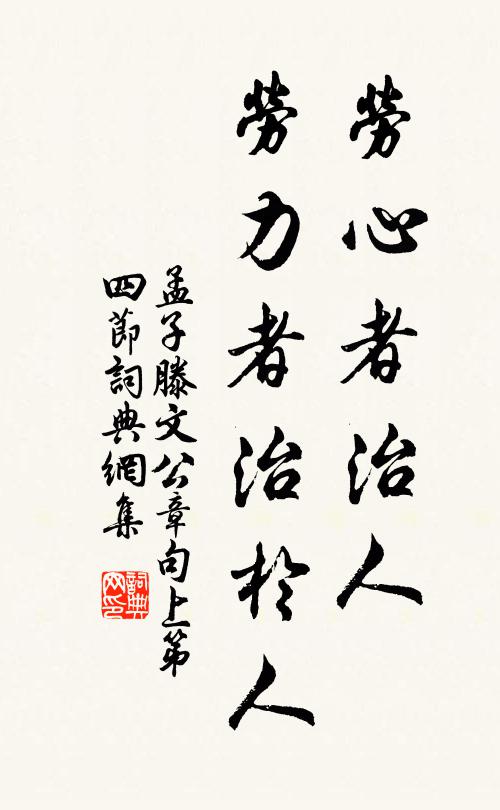 勞心者治人
勞力者治於人
孟子滕文公章句上第
四節詞典網集
詞典
网印